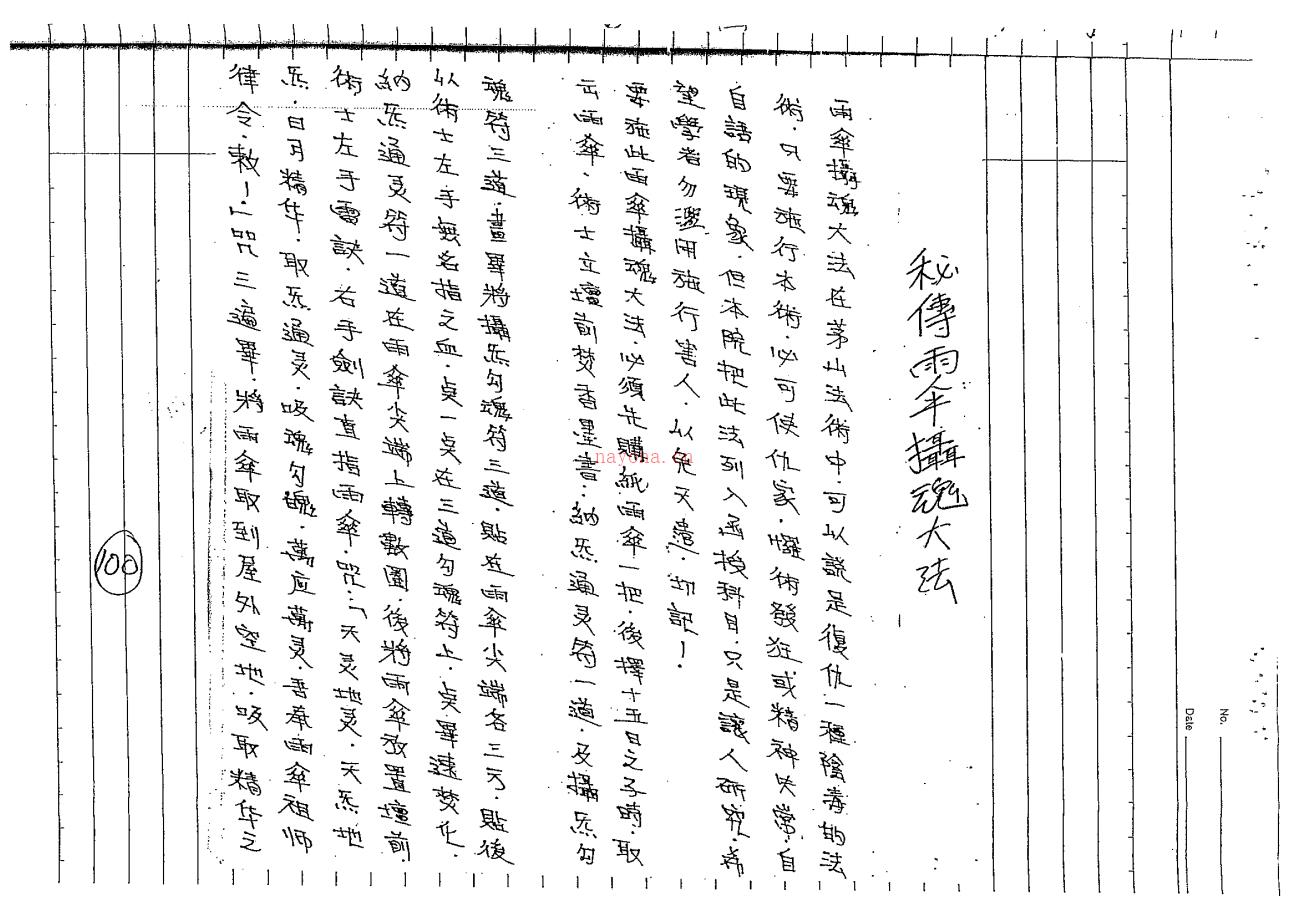 秘傳雨伞攝魂大法
雨傘攝魂大法在茅山法術中.可以說是復仇一種陰毒的法
術.只要施行本術.必可使仇家.懼術發狂.或精神失常.自
自語的現象.但本院把此法列入函授科目.只是讓人研究.希
望學者勿濫用施行害人.以免天遣.切記!
要施此雨傘攝魂大法.必須先購紙雨傘一把.後擇十五日之子時.取
云雨傘、術士立壇前焚香墨書:納炁通灵符一道.及攝炁勾
魂符三道.畫畢將攝炁勾魂符三道.貼在雨傘尖端各三方.貼後
以術士左手無名指之血.点一点在三道勾魂符上.点畢速焚化.
納炁通灵符一道在雨傘尖端上轉數圈.後將雨傘放置壇前.
術士左手雷訣.右手劍訣直指雨傘.咒:「天灵地灵.天炁地
炁.日月精华.取炁通灵.吸魂勾魂.萬应萬灵.吾奉雨傘祖师
律令.敕!」咒三遍畢.將雨傘取到屋外空地.吸取精华之
100
No.
Date
nayona.cn